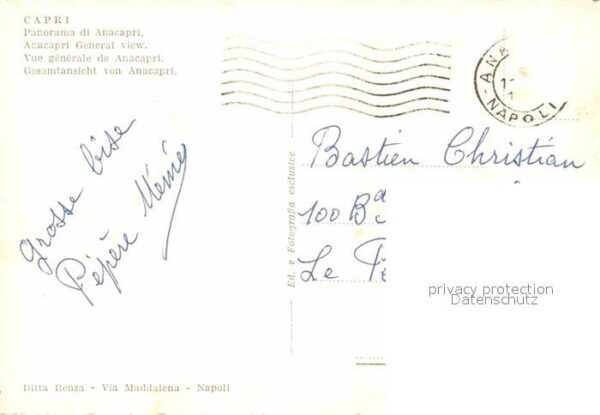 CAPRI
Panorama di Anacapri.
Anacapri General view.
Vue générale de Anacapri.
Gesamtansicht von Anacapri.
NAPOLI
Grosse bise
Pépère Mémé
Ed. e Fotografia esclusive
Bastien Christian
100 Bd
Le
privacy protection
Datenschutz
Ditta Renza - Via Maddalena - Napoli